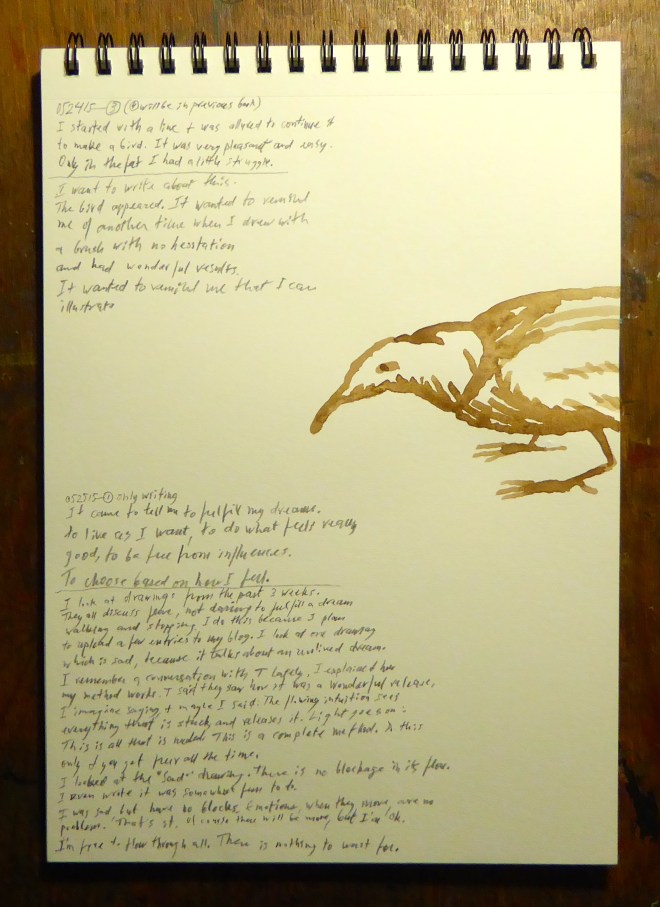 052415-③ (④ will be in previous book)
I started with a line + was allowed to continue it
to make a bird. It was very pleasant and easy.
Only in the feet I had a little struggle.
I want to write about this.
The bird appeared. It wanted to remind
me of another time when I drew with
a brush with no hesitation
and had wonderful results.
It wanted to remind me that I can
illustrate
052515-① only writing
It came to tell me to fulfill my dreams.
To live as I want, to do what feels really
good, to be free from influences.
To choose based on how I feel.
I look at drawings from the past 3 weeks.
They all discuss fear, not daring to fulfill a dream
walking and stopping. I do this because I plan
to upload a few entries to my blog. I look at one drawing
which is sad, because it talks about an unlived dream.
I remember a conversation with T lately. I explained how
my method works. T said they saw how it was a wonderful release.
I imagine saying + maybe I said. The flowing intuition sees
everything that is stuck and releases it. Light person:
This is all that is needed. This is a complete method. In this
only you get freer all the time.
I looked at the "sad" drawing. There is no blockage in its flow.
I even wrote it was somewhat fun to do.
I was sad but have no blocks. Emotions, when they move are no
problem. That's it. Of course there will be more, but I'm ok.
I'm free to flow through all. There is nothing to wait for.